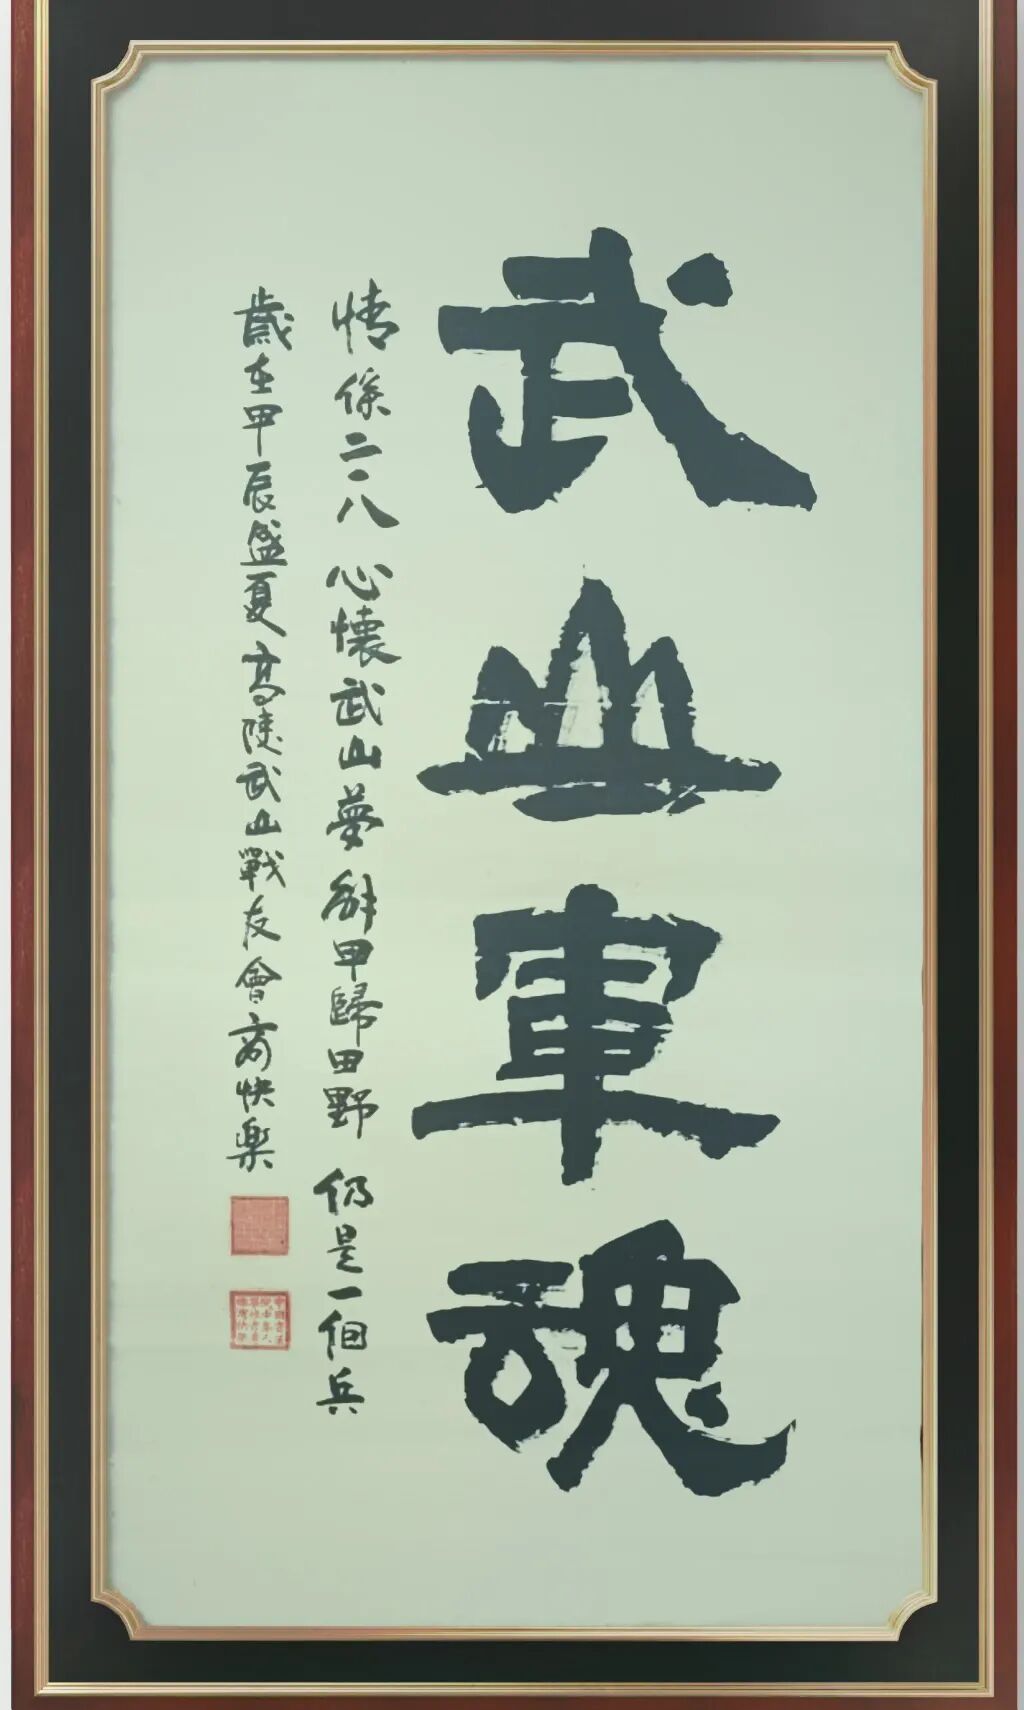 武山軍魂
情係二〇八 心懷武山夢 解甲歸田野 仍是一個兵
歲在甲辰盛夏高陵武山戰友會高快樂